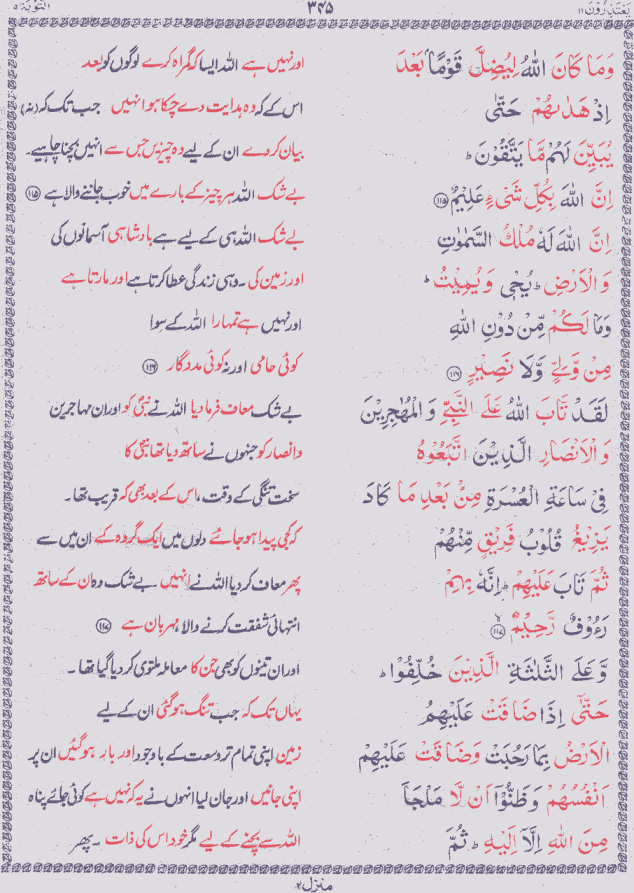 یعتذرون ۱۱ ۳۴۵ التوبۃ ۹
وَمَا كَانَ اللّٰهُ لِيُضِلَّ قَوْمًۢا بَعْدَ اور نہیں ہے اللہ ایسا کہ گمراہ کرے لوگوں کو بعد
اِذْ هَدٰىهُمْ حَتّٰى اس کے کہ وہ ہدایت دے چکا ہو انہیں جب تک کہ (نہ)
يُبَيِّنَ لَهُمْ مَّا يَتَّقُوْنَ ؕ بیان کر دے ان کے لیے وہ چیزیں جس سے انہیں بچنا چاہیے۔
اِنَّ اللّٰهَ بِكُلِّ شَىْءٍ عَلِيْمٌ ۝۱۱۵ بے شک اللہ ہر چیز کے بارے میں خوب جاننے والا ہے ۝۱۱۵
اِنَّ اللّٰهَ لَهٗ مُلْكُ السَّمٰوٰتِ بے شک اللہ ہی کے لیے ہے بادشاہی آسمانوں کی
وَالْاَرْضِ ؕ يُحْىٖ وَيُمِيْتُ ؕ اور زمین کی۔ وہی زندگی عطا کرتا ہے اور مارتا ہے
وَمَا لَكُمْ مِّنْ دُوْنِ اللّٰهِ اور نہیں ہے تمہارا اللہ کے سوا
مِنْ وَّلِىٍّ وَّلَا نَصِيْرٍ ۝۱۱۶ کوئی حامی اور نہ کوئی مددگار ۝۱۱۶
لَقَدْ تَّابَ اللّٰهُ عَلَى النَّبِىِّ وَالْمُهٰجِرِيْنَ بے شک معاف فرما دیا اللہ نے نبیؐ کو اور ان مہاجرین
وَالْاَنْصَارِ الَّذِيْنَ اتَّبَعُوْهُ و انصار کو جنہوں نے ساتھ دیا تھا نبیؐ کا
فِىْ سَاعَةِ الْعُسْرَةِ مِنْۢ بَعْدِ مَا كَادَ سخت تنگی کے وقت، اس کے بعد بھی کہ قریب تھا۔
يَزِيْغُ قُلُوْبُ فَرِيْقٍ مِّنْهُمْ کہ کجی پیدا ہو جائے دلوں میں ایک گروہ کے ان میں سے
ثُمَّ تَابَ عَلَيْهِمْ ؕ اِنَّهٗ بِهِمْ پھر معاف کر دیا اللہ نے انہیں بے شک وہ ان کے ساتھ
رَءُوْفٌ رَّحِيْمٌ ۝۱۱۷ انتہائی شفقت کرنے والا، مہربان ہے ۝۱۱۷
وَّعَلَى الثَّلٰثَةِ الَّذِيْنَ خُلِّفُوْا ؕ اور ان تینوں کو بھی جن کا معاملہ ملتوی کر دیا گیا تھا۔
حَتّٰۤى اِذَا ضَاقَتْ عَلَيْهِمُ یہاں تک کہ جب تنگ ہو گئی ان کے لیے
الْاَرْضُ بِمَا رَحُبَتْ وَضَاقَتْ عَلَيْهِمْ زمین اپنی تمام تر وسعت کے باوجود اور بار ہو گئیں ان پر
اَنْفُسُهُمْ وَظَنُّوْۤا اَنْ لَّا مَلْجَاَ اپنی جانیں اور جان لیا انہوں نے یہ کہ نہیں ہے کوئی جائے پناہ
مِنَ اللّٰهِ اِلَّاۤ اِلَيْهِ ؕ ثُمَّ اللہ سے بچنے کے لیے مگر خود اس کی ذات۔ پھر
منزل ۲